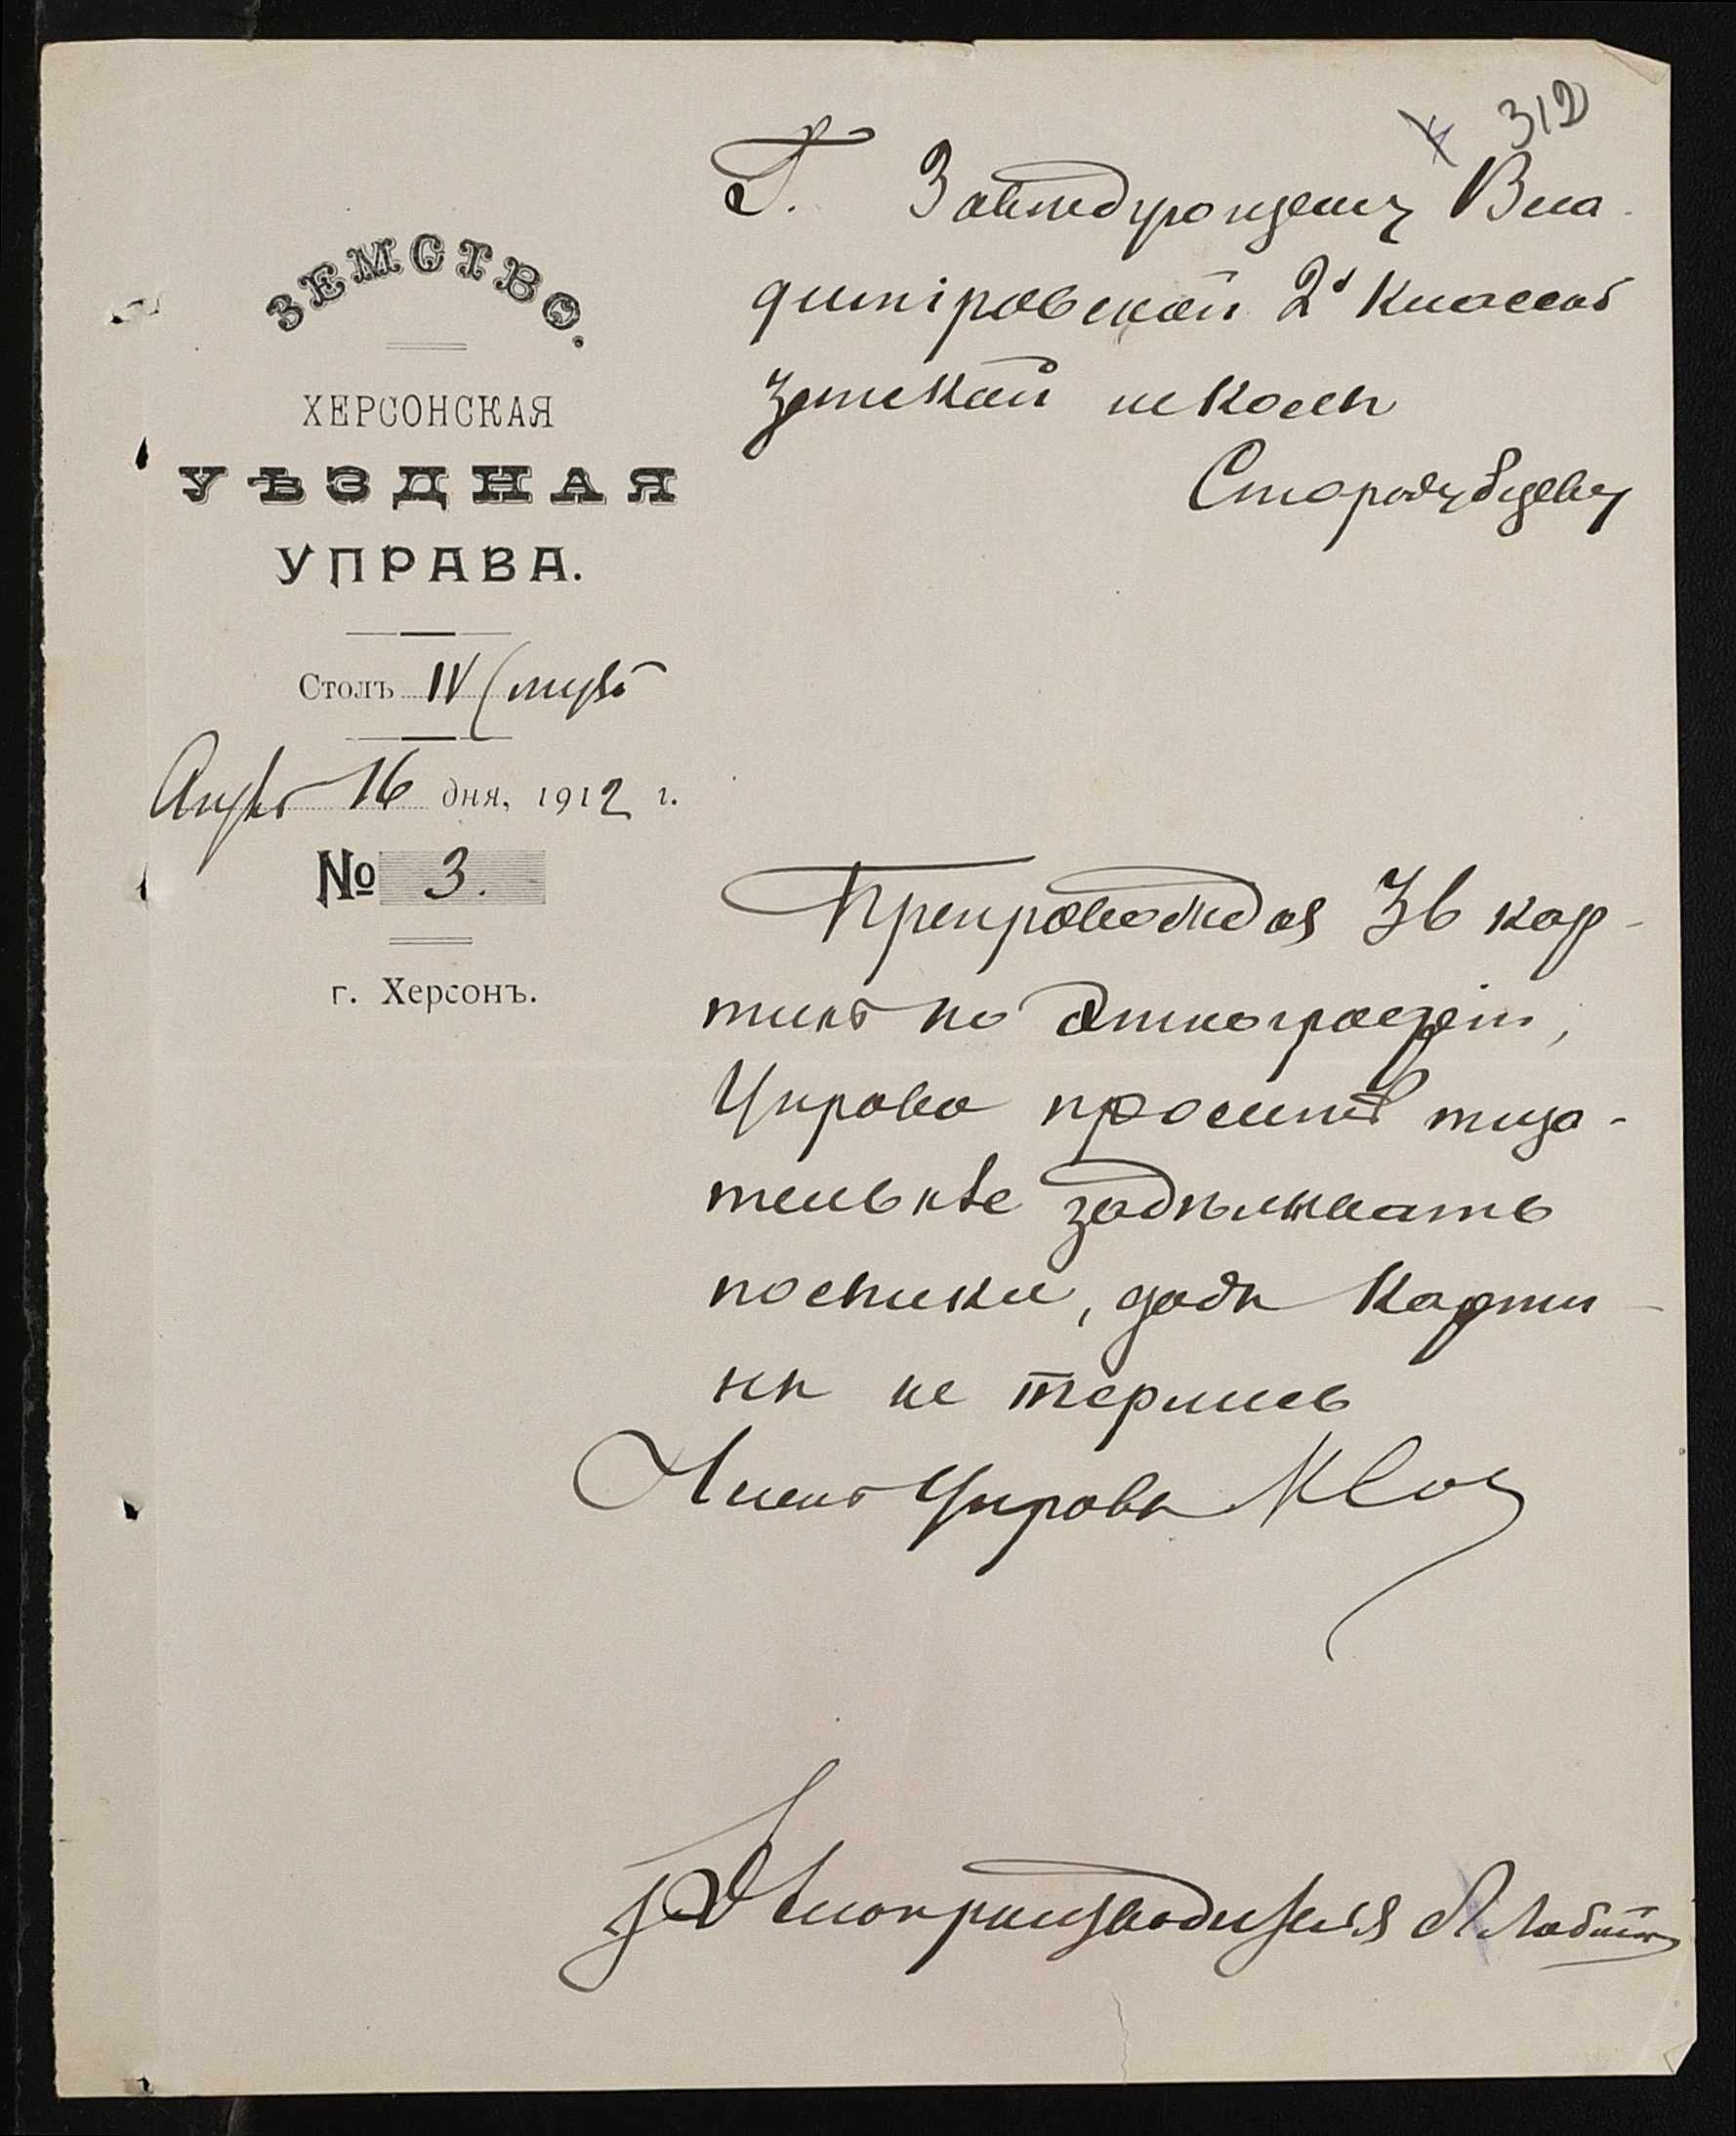 312
Г. Завѣдующему Вла-
димiровской 2х классной
земской школы
Стародубцеву
ЗЕМСТВО.
ХЕРСОНСКАЯ
УѢЗДНАЯ
УПРАВА.
Столъ IV
16 дня, 1912 г.
№ 3.
г. Херсонъ.
Препровождая 36 кар-
тинъ по этнографiи,
Управа проситъ тща-
тельнѣе задѣлывать
посылки, дабы карти-
ны не терлись
Членъ Управы
Дѣлопроизводителя